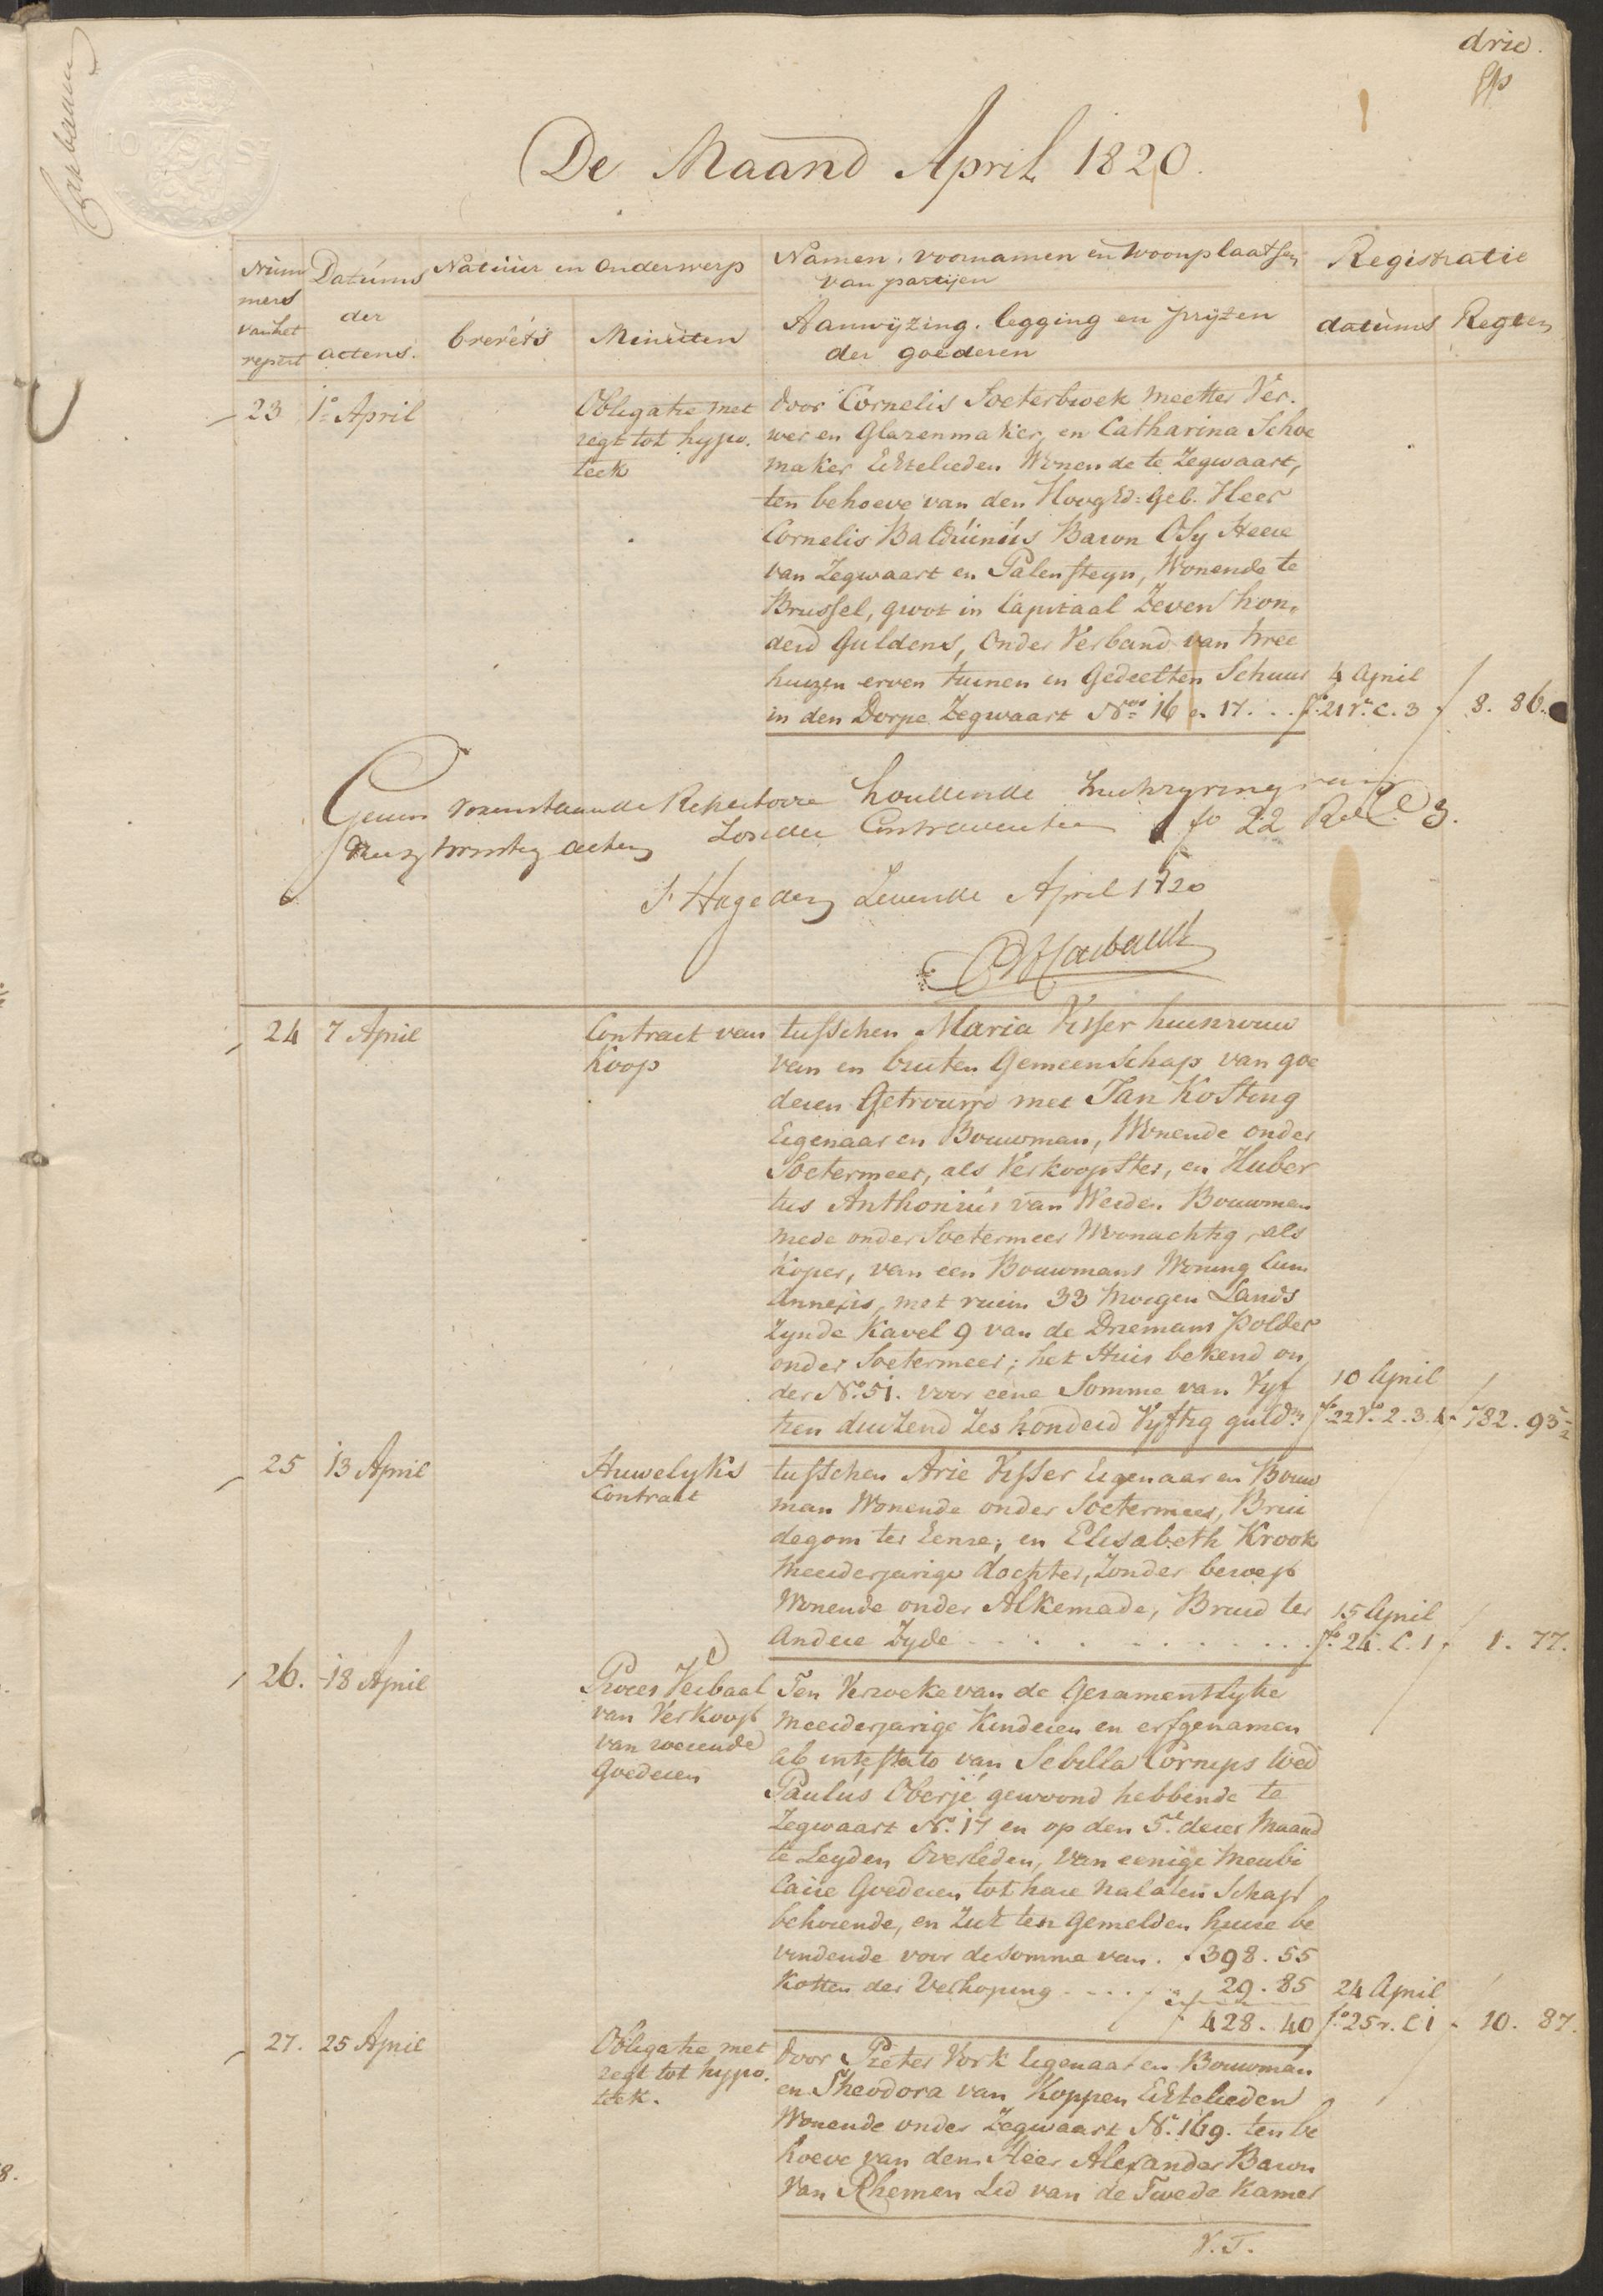 drie.
De Maand April 1820.
Num
mers
van het
repert
Datums
der
actens.
Natuur en Onderwerp
brevêts
Minuten
Namen, voornamen en Woonplaatsen
van partijen
Aanwijzing, legging en prijzen
der goederen
Registratie
datums Regten
23 1e April
Obligatie met
regt tot hypo.
teek
door Cornelis Soeterbroek Meester Ver.
wer en Glazenmaker, en Catharina Schoe
maker Echtelieden Wonende te Zegwaart,
ten behoeve van den HoogEd: Geb. Heer
Cornelis Balduinús Baron Osy Heere
van Zegwaart en Palensteyn, Wonende te
Brussel, groot in Capitaal Zeven hon,
derd Guldens, Onder Verband van twee
huizen erven tuinen en Gedeelten Schuur
in den Dorpe Zegwaart Nos 16 en 17. . .
4 April
fo. 21 vo. C. 3 f 8. 86.
Gezien voorenstaande Repertoire houdende Inschryving van
twintig acten Zonder Contraventie fo 22 Re C 3.
S Hage den Zevende April 1820
24 7 April
Contract van
Koop
tusschen Maria Visser huisvrouw
van en buiten Gemeenschap van goe
deren Getrouwd met Jan Kosting
Eigenaar en Bouwman, Wonende onder
Soetermeer, als Verkoopster, en Huber
tus Anthoniús van Werden Bouwman
mede onder Soetermeer Woonachtig, als
Koper, van een Bouwmans Woning Cum
Annexis, met ruim 33 Morgen Lands
Zynde Kavel 9 van de Driemans Polder
onder Soetermeer; het Huis bekend on
der No. 51. voor eene Somme van Vyf
tien duizend Zes honderd Vyftig guldns
10 April
fo. 22 vo. 2. 3. 4 f 782. 93½
25 13 April
Huwelyks
Contract
tusschen Arie Visser Eigenaar en Bouw
man Wonende onder Soetermeer, Brui
degom ter Eenre; en Elisabeth Krook
Meerderjarige dochter, Zonder beroep
Wonende onder Alkemade, Bruid ter
Andere Zyde . . . . . . . . . . . .
15 April
fo. 24. C. 1 f 1. 77.
26. 18 April
Proces Verbaal
van Verkoop
van roerende
Goederen
Ten Verzoeke van de Gezamentlyke
Meerderjarige Kinderen en erfgenamen
ab intestato van Sebilla Cornips Wed
Paulús Oberjé gewoond hebbende te
Zegwaart No. 17 en op den 5e. dezer Maand
te Leyden Overleden, van eenige Meubi
laire Goederen tot hare Nalatenschap
behorende, en Zich ten gemelden huize be
vindende voor de somme van . f 398. 55
Kosten der Verkoping . . . . . 29. 85
f 428. 40
24 April
fo. 25 r. C 1 f 10. 87.
27. 25 April
Obligatie met
regt tot hypo.
teek.
door Pieter Vork Eigenaar en Bouwman
en Theodora van Koppen Echtelieden
Wonende onder Zegwaart No. 169. ten be
hoeve van den Heer Alexander Baron
Van Rhemen Lid van de Twede Kamer
V.T.